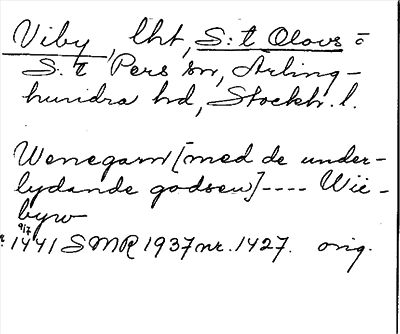 Viby, lht, S:t Olovs o
S:t Pers sn, Ärling-
hundra hd, Stockh. l.
Wenegarn [med de under-
lydande godsen] ---- Wii-
byw
9/7
1441 SMR 1937 nr. 1427. orig.